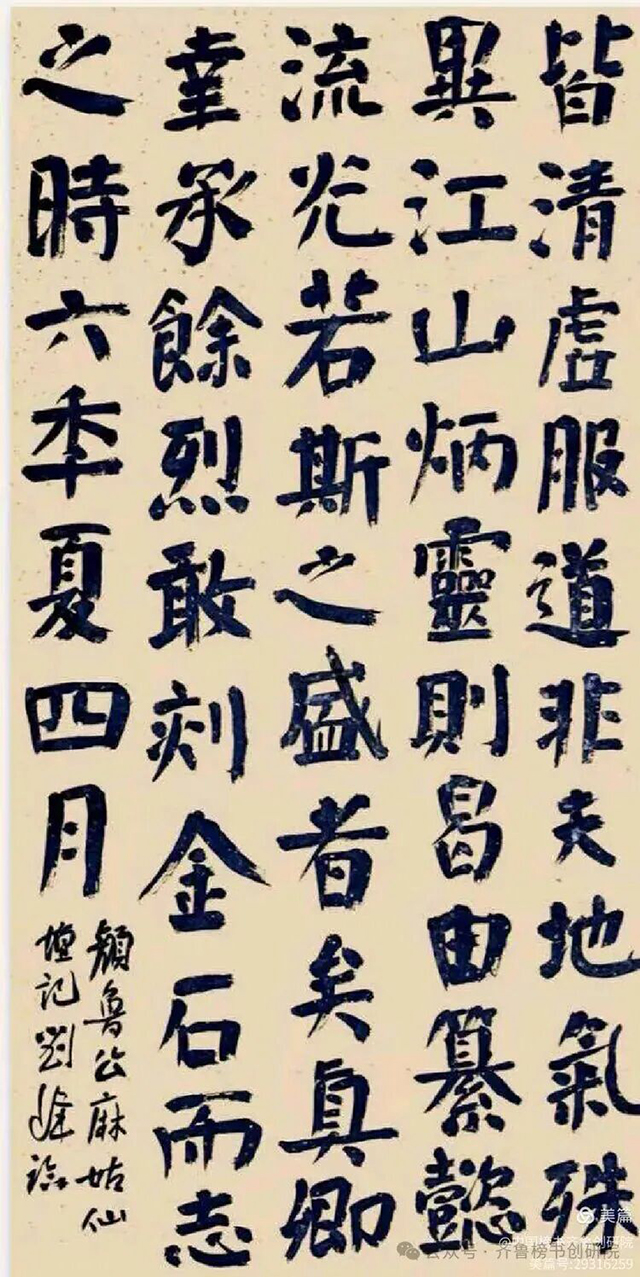 皆清虛服道非夫地氣殊
異江山炳靈則曷由纂懿
流光若斯之盛者矣真卿
幸承餘烈敢刻金石而志
之時六秊夏四月
顏魯公麻姑仙
壇記劉臨
美篇
公众号 · 齐鲁榜书创研院
美篇号:29316259